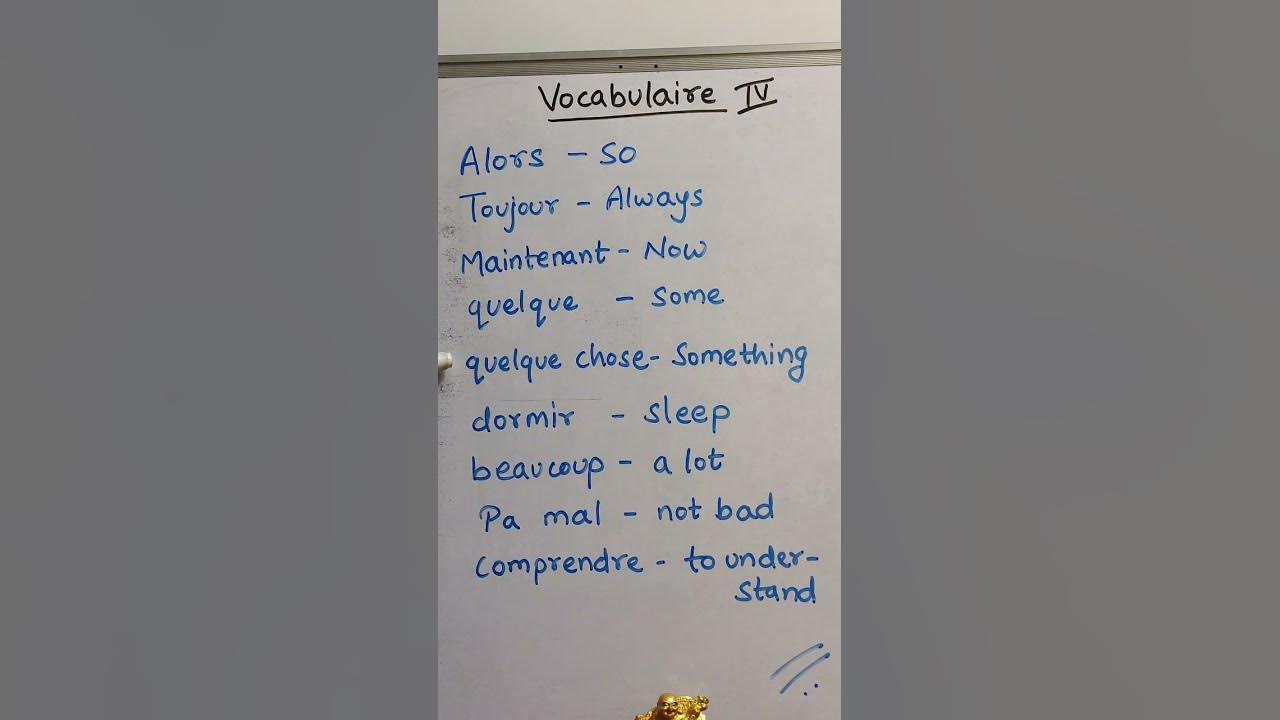 Vocabulaire IV
Alors - so
Toujour - Always
Maintenant - Now
quelque - some
quelque chose - something
dormir - sleep
beaucoup - a lot
Pa mal - not bad
comprendre - to under-
stand